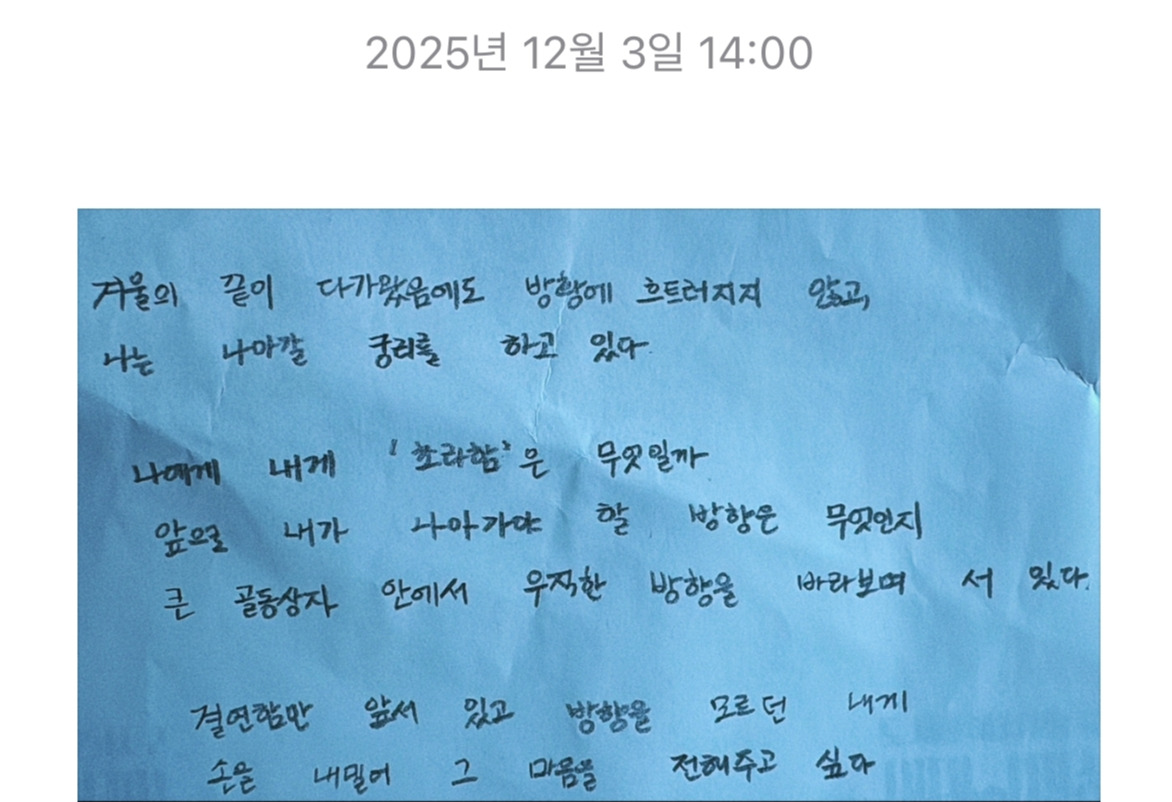 2025년 12월 3일 14:00
겨울의 끝이 다가왔음에도 방황에 흐트러지지 않고,
나는 나아갈 궁리를 하고 있다.
나에게 내게 '초라함'은 무엇일까
앞으로 내가 나아가야 할 방향은 무엇인지
큰 골동상자 안에서 우직한 방향을 바라보며 서 있다.
결연함만 앞서 있고 방향을 모르던 내게
손을 내밀어 그 마음을 전해주고 싶다